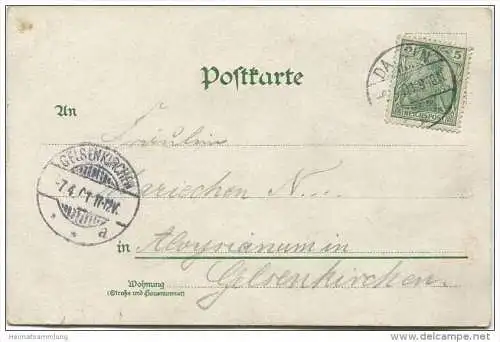 Postkarte
5
DA
An
Fräulein
Mariechen N...
GELSENKIRCHEN
7.4.01.11-12V.
* * a
in Aloysianum in
Gelsenkirchen.
Wohnung
(Straße und Hausnummer)
Heimatsammlung
delcampe.net